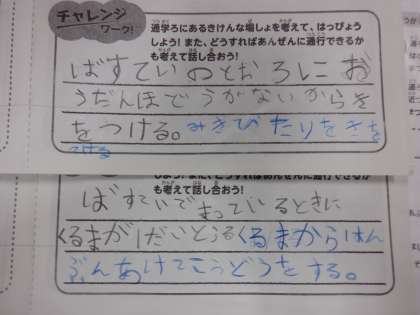 チャレンジ
ワーク!
通学ろにあるきけんな場しょを考えて、はっぴょう
しよう! また、どうすればあんぜんに通行できるか
も考えて話し合おう!
ばすていのとおろにお
うだんほどうがないからき
をつける。みぎひだりをきを
つける
しよう! また、どうすればあんぜんに通行できるか
も考えて話し合おう!
ばすていでまっているときに
くるまが だいとうる くるまからはん
ぶんあけてこうどうをする。